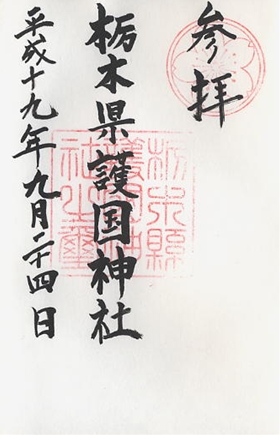 参拝
栃木県護国神社
平成十九年九月二十四日
栃木縣
護國神
社之璽